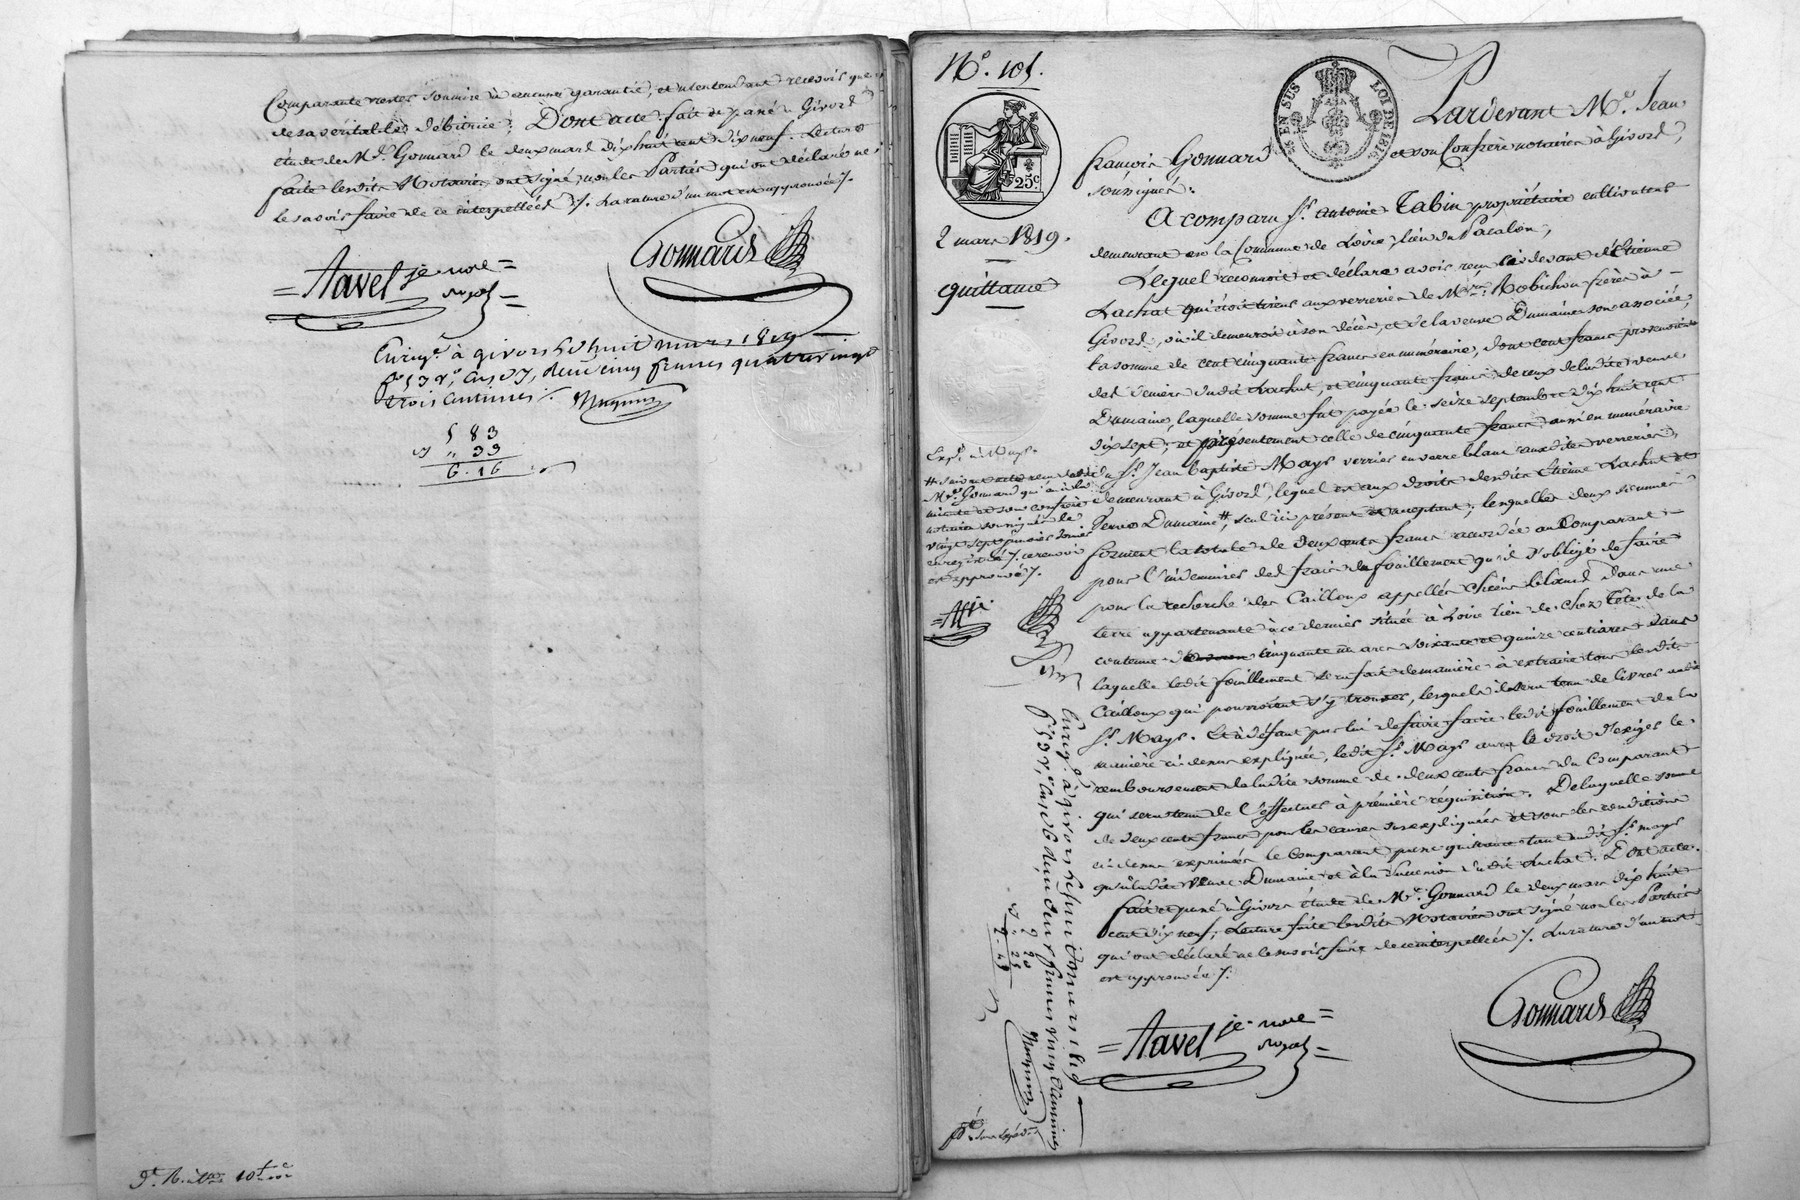 Comparante rester soumise à aucune garantie, et n'entendant recevoir que
de sa véritable débitrice. Dont acte, fait et passé à Givord
étude de Me. Gonnard le deux mars dix huit cent dix neuf. Lecture
faite lesdits Notaires ont signé, non les Parties qui ont déclaré ne
le savoir faire de ce interpellées ./. La rature d'un mot est approuvée ./.
= Aavel je. nore =
royal =
Gonnard
Enregé. à givors le huit mars 1819
fo. 53 vo. deux cinq francs quatre vingt
trois centimes ./. Magnin
5 83
" 33
6. 16
No. 101.
EN SUS LOI DE 1816
25c.
2 mars 1819.
quittance
Pardevant Me. Jean
françois Gonnard et son Confrère notaires à Givord,
soussignés:
A comparu Sr. Antoine Tabin propriétaire cultivateur
demeurant en la Commune de Loire, lieu du Pacalon,
Lequel reconnoit et déclare avoir reçu ci devant d'Etienne
Lachat qui étoit tireur aux verreries de Mrs. Robichon frères à
Givord, où il demeuroit à son décès, et de la veuve Dumaine son associée,
la somme de cent cinquante francs en numéraire, dont cent francs provenoient
des deniers dudit Lachat, et cinquante francs de ceux de ladite veuve
Dumaine, laquelle somme fut payée le seize septembre dix huit cent
dix sept; et présentement celle de cinquante francs aussi en numéraire
du Sr. Jean Baptiste Mays verrier en verre blanc auxdites verreries,
demeurant à Givord, lequel est aux droits desdits Etienne Lachat et
Veuve Dumaine #, seul ici présent et acceptant; lesquelles deux sommes
forment la totale de deux cents francs accordée au Comparant
pour l'indemniser des frais du fouillement qu'il s'obligé de faire
pour la recherche des Cailloux appellés Chiens blancs dans une
terre appartenante à ce dernier située à Loire lieu de chez Tête de la
contenue de cinquante un ares soixante et quinze centiares dans
laquelle ledit fouillement sera fait de manière à extraire tous lesdits
Cailloux qui pourroient s'y trouver, lesquels il sera tenu de livrer audit
Sr. Mays. Et à défaut par lui de faire faire ledit fouillement de la
manière ci dessus expliquée, ledit Sr. Mays aura le droit d'exiger le
remboursement de ladite somme de deux cents francs du Comparant
qui sera tenu de l'effectuer à première réquisition. De laquelle somme
de deux cents francs pour les causes sus expliquées et sous les conditions
ci dessus exprimées le Comparant passe quittance tant audit Sr. mays
qu'à ladite veuve Dumaine et à la succession dudit Lachat. Dont acte.
fait et passé à Givors étude de Me. Gonnard le deux mars dix huit
cent dix neuf, Lecture faite lesdits Notaires ont signé non les Parties
qui ont déclaré ne le savoir faire de ce interpellées ./. La rature d'un mot
est approuvée ./.
# suivant acte reçu
Me. Gonnard qui a la
minute et son confrère
notaires soussignés le
vingt sept janvier dernier
enregistré ./. ce renvoi
est approuvé ./.
Enregé. à givors le huit mars 1819
fo. 53 vo. deux francs vingt centimes
Magnin
2. 20
25
2. 45
= Aavel je. nore =
royal =
Gonnard